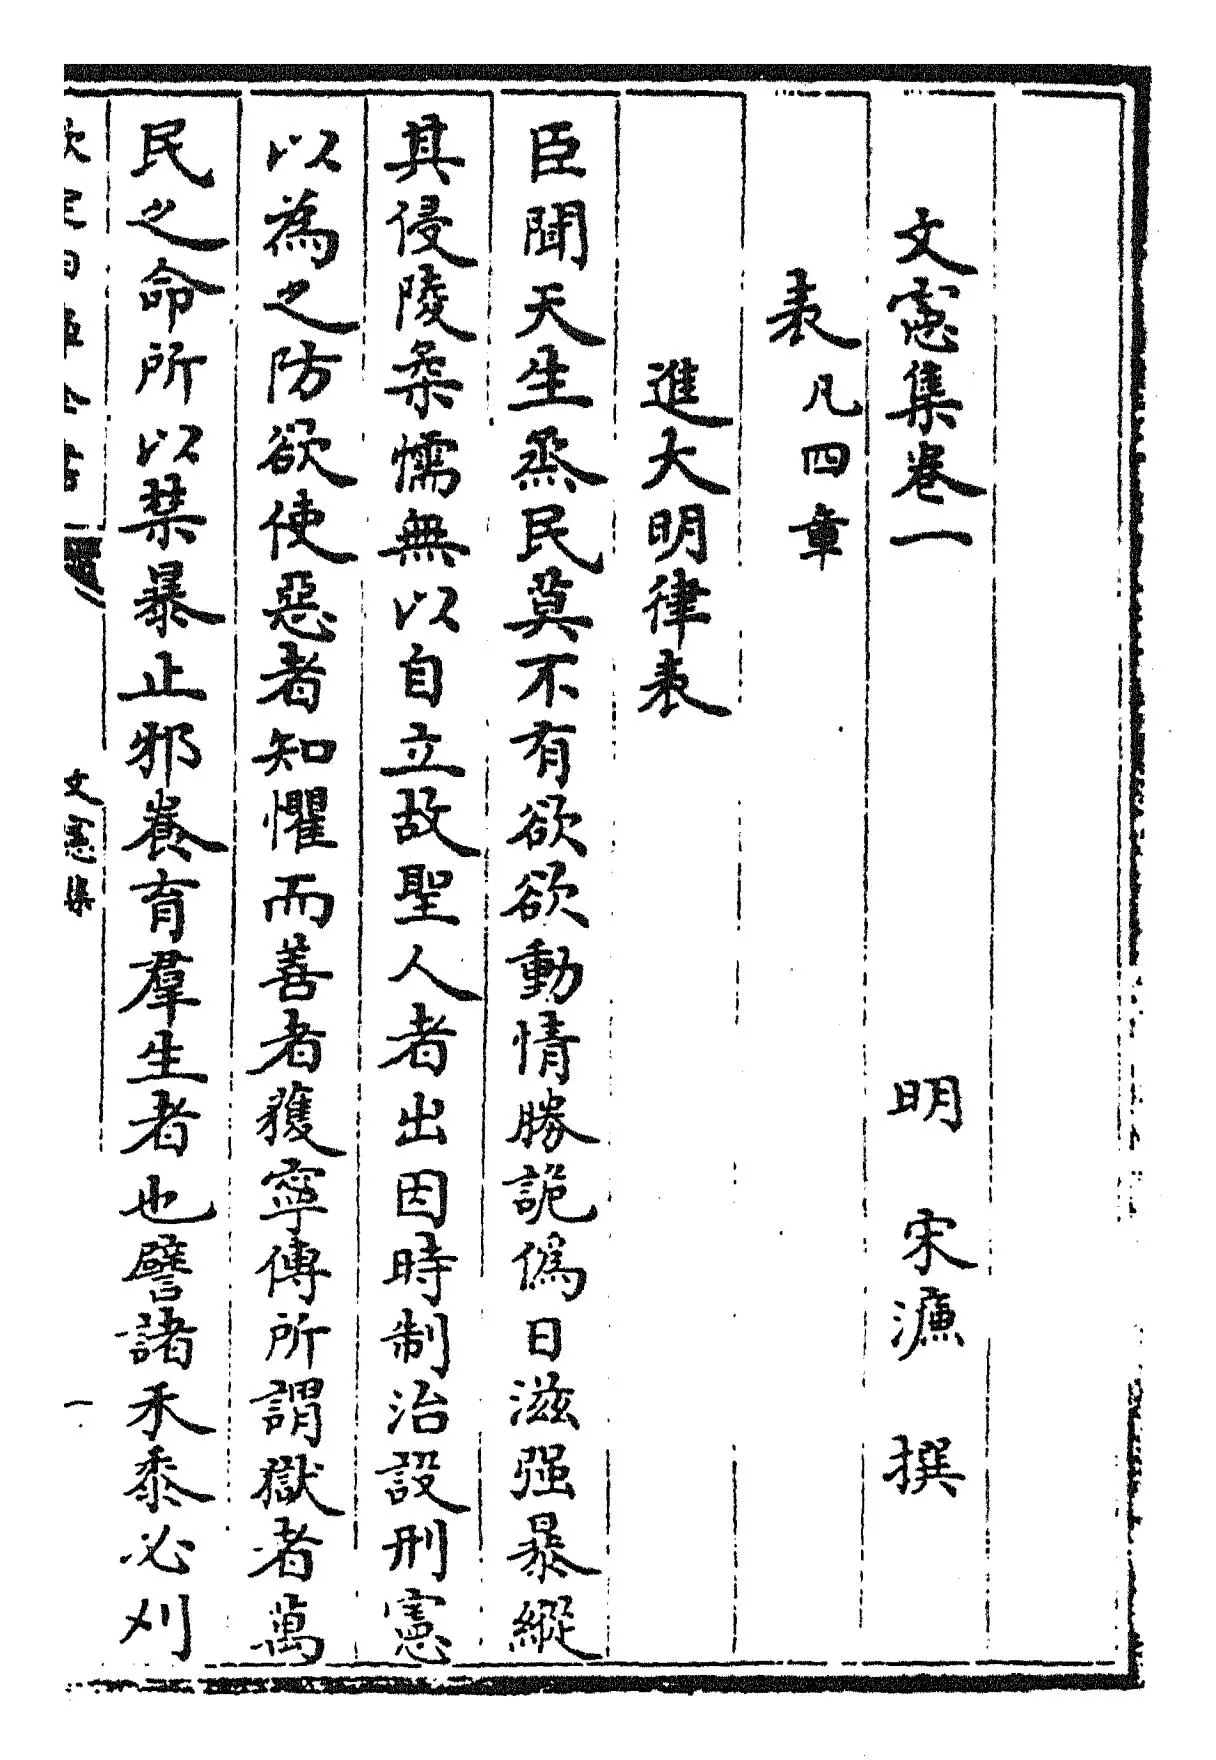 文憲集卷一　明　宋濂　撰
表凡四章
進大明律表
臣聞天生烝民莫不有欲欲動情勝詭僞日滋强暴縱
其侵陵柔懦無以自立故聖人者出因時制治設刑憲
以為之防欲使惡者知懼而善者獲寧傳所謂獄者萬
民之命所以禁暴止邪養育羣生者也譬諸禾黍必刈
文憲集
一